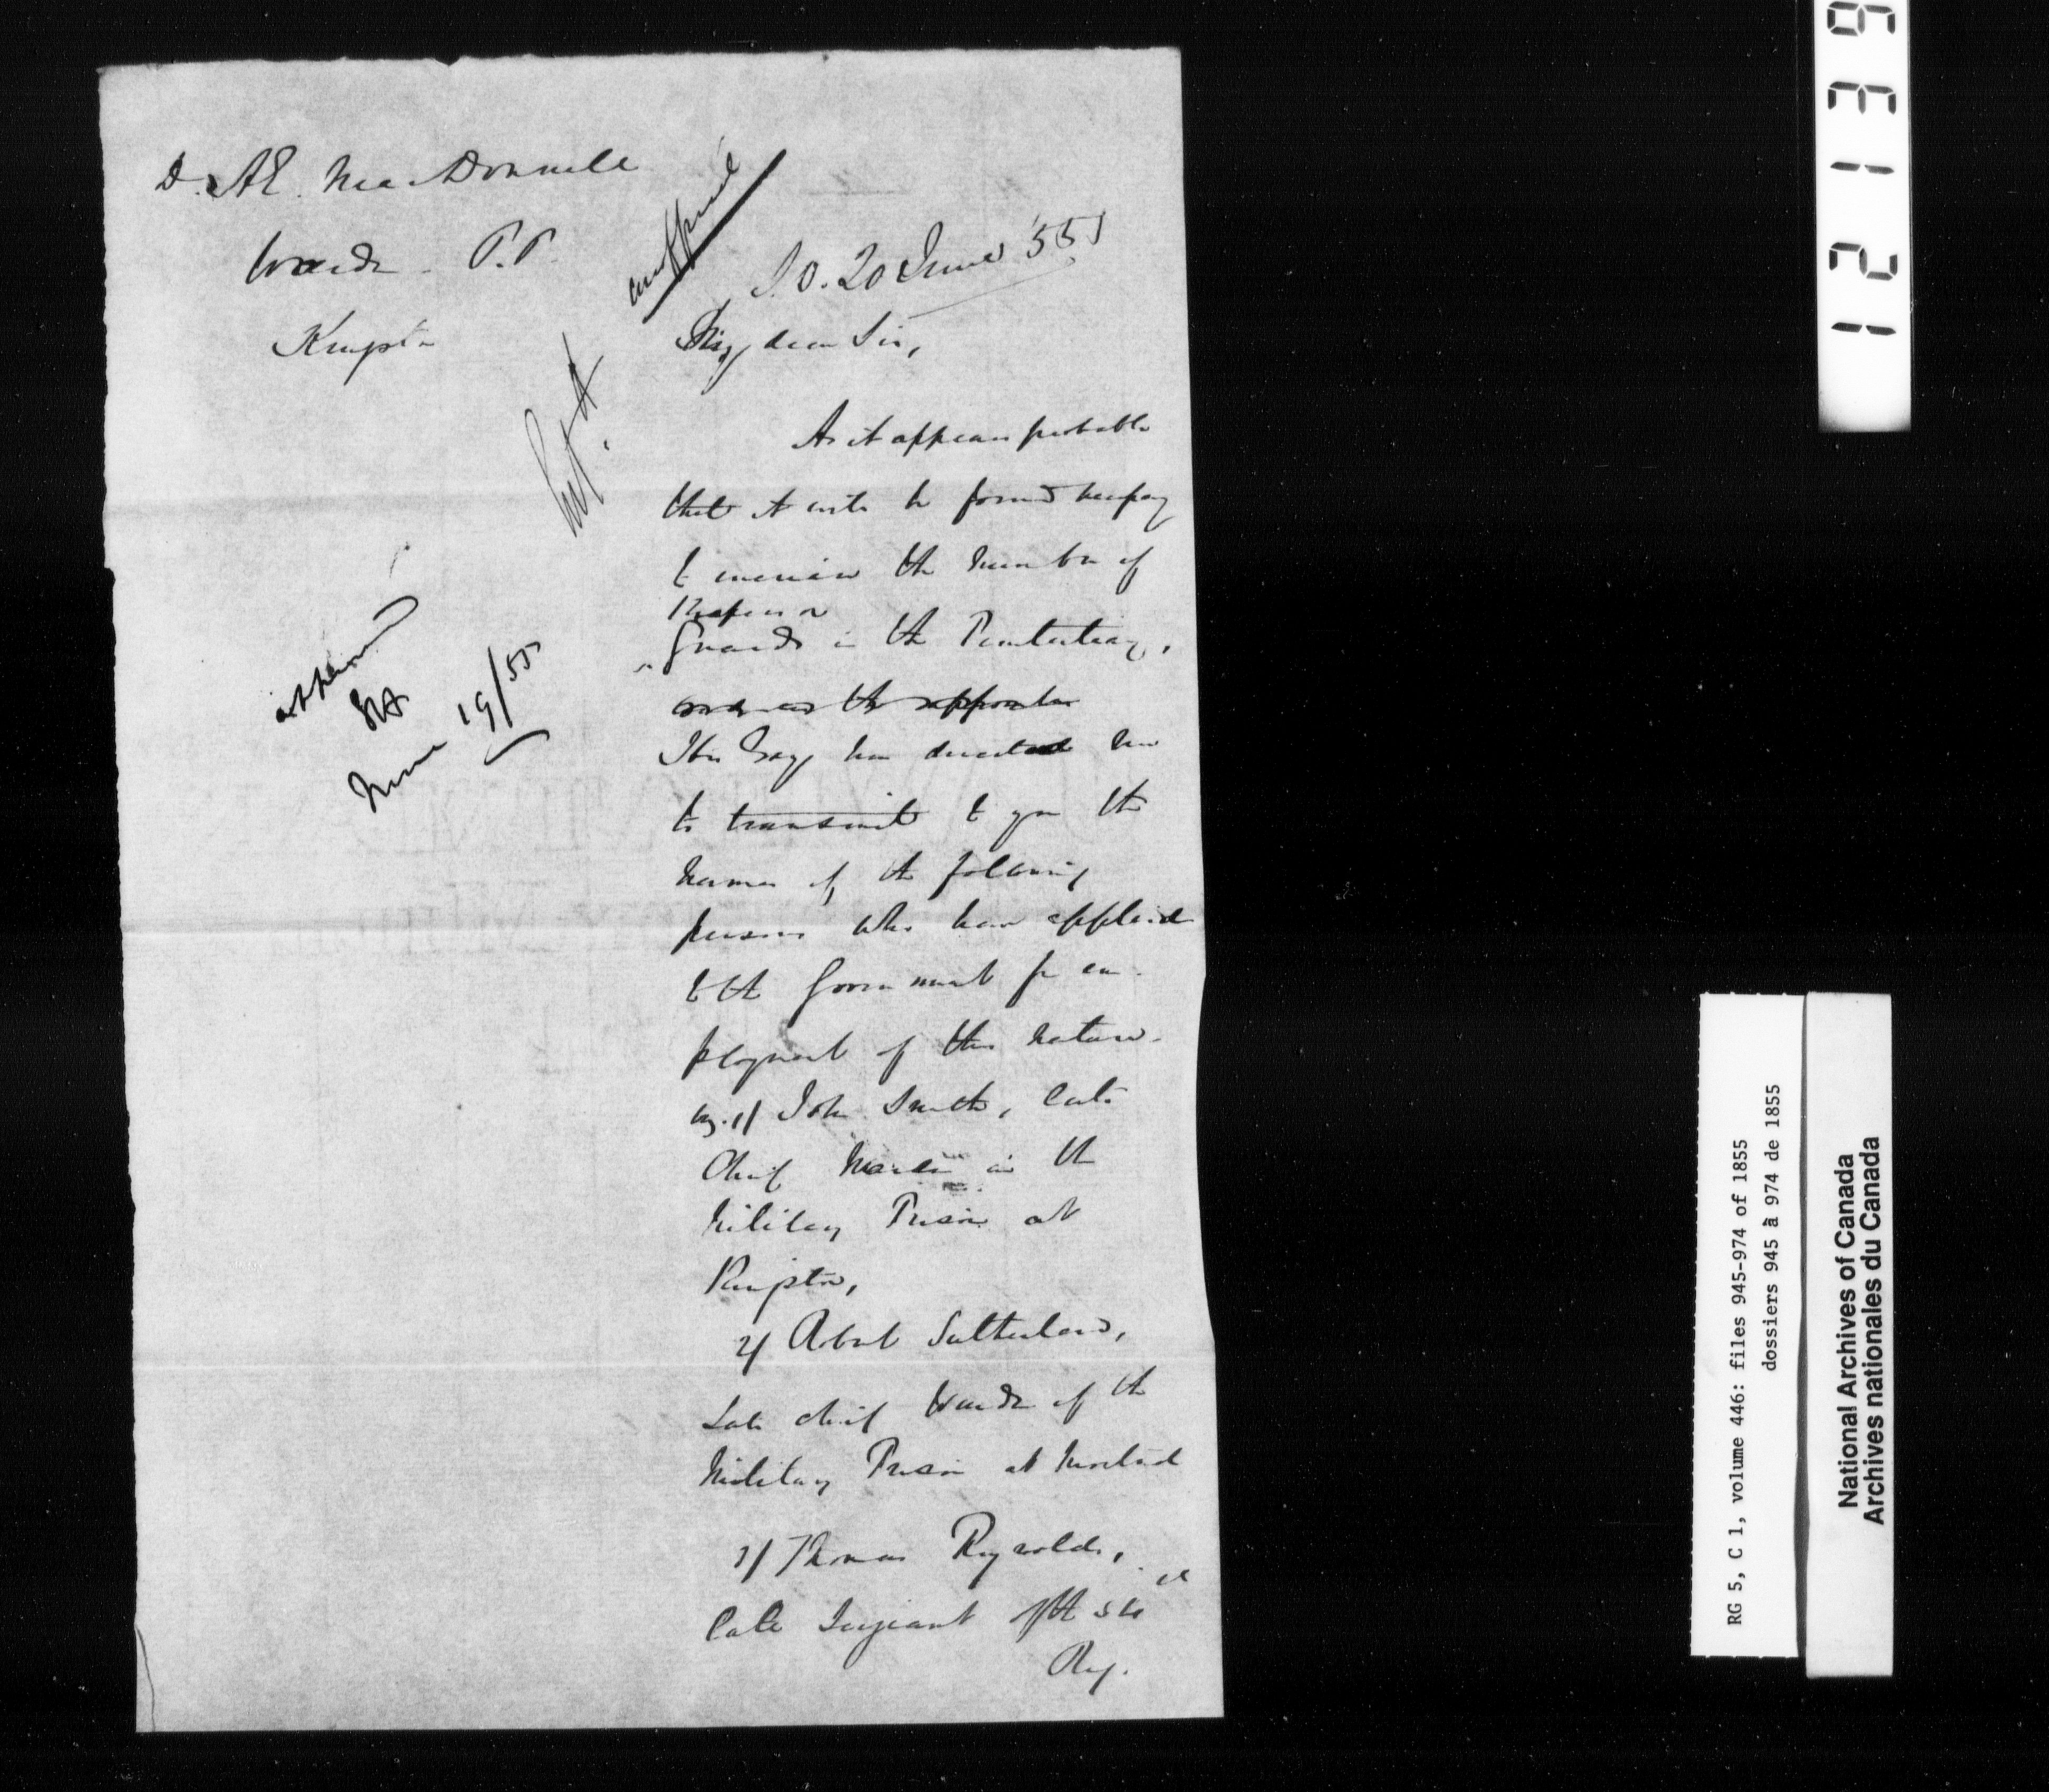 D. A.E. MacDonnell
Warden P.P.
Kingston
S.O. 20 June '55
My dear Sir,
As it appears probable
that it will be found necessary
to increase the number of
Keepers or
Guards in the Penitentiary,
and as the
His Excy has directed me
to transmit to you the
names of the following
persons who have applied
to the Government for em-
ployment of this nature.
viz. 1/ John Smith, late
Chief Warder in the
Military Prison at
Kingston,
2/ Robert Sutherland,
Late chief Warder of the
Military Prison at Montreal
3/ Thomas Reynolds,
late Sergeant of the
Reg.
June 19/55
1 2 1 3 9
RG 5, C 1, volume 446: files 945-974 of 1855
dossiers 945 à 974 de 1855
National Archives of Canada
Archives nationales du Canada